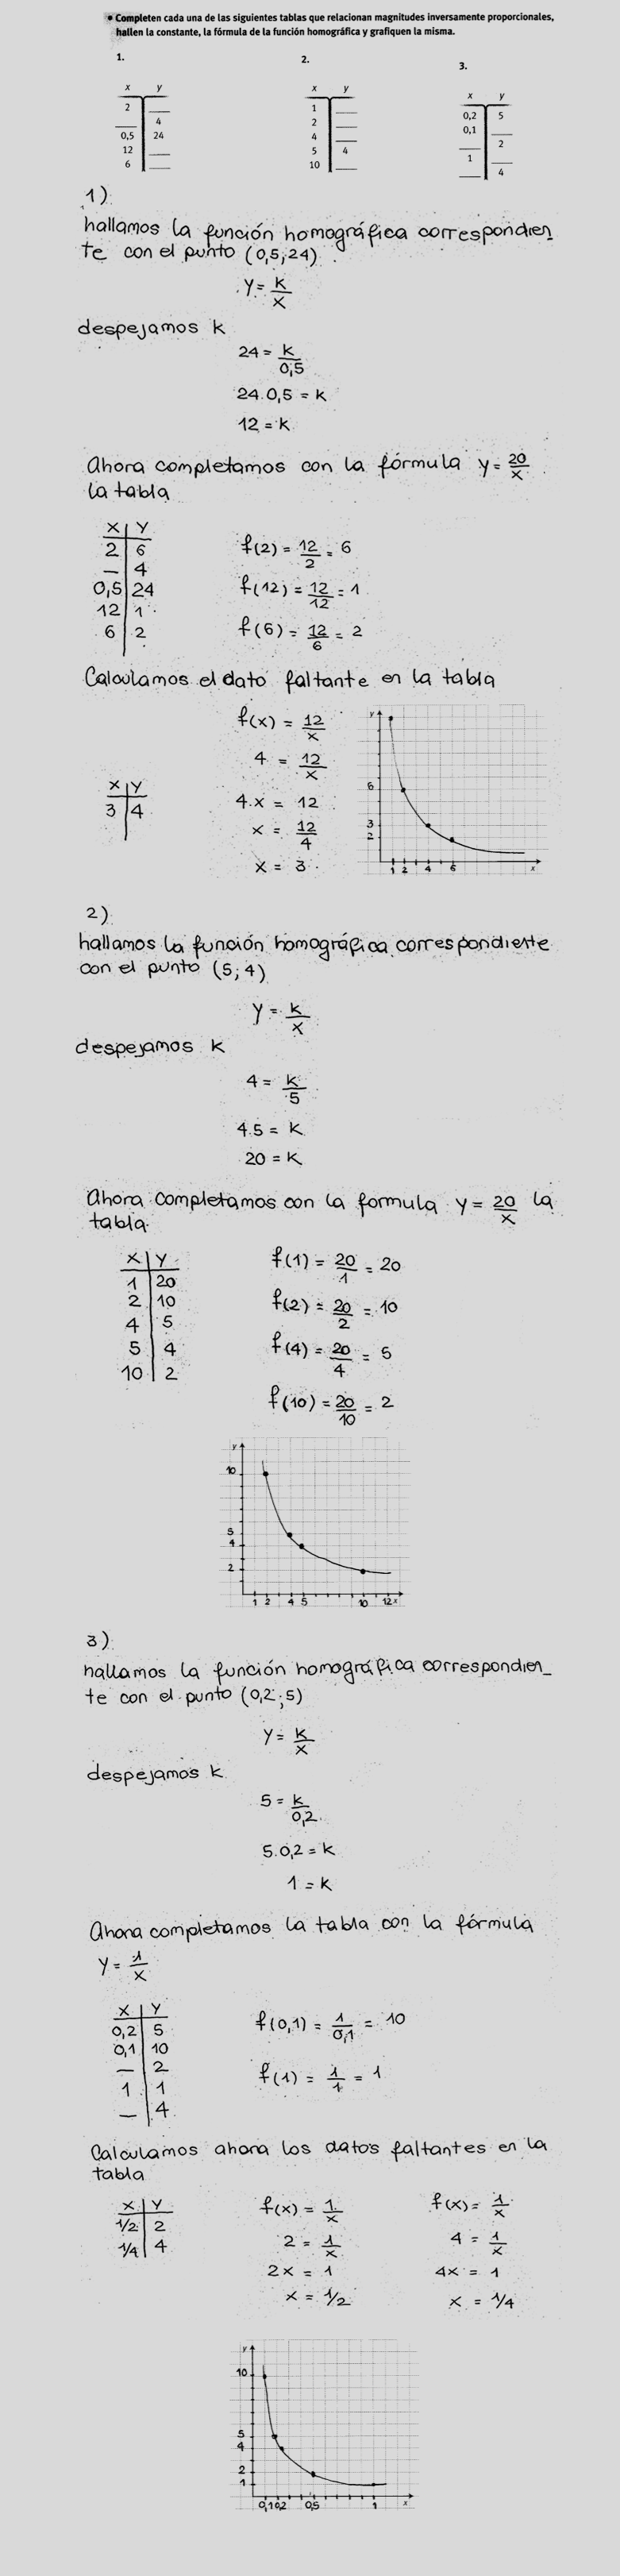 • Completen cada una de las siguientes tablas que relacionan magnitudes inversamente proporcionales,
hallen la constante, la fórmula de la función homográfica y grafiquen la misma.
1.
x y
2 ___
___ 4
0,5 24
12 ___
6 ___
2.
x y
1 ___
2 ___
4 ___
5 4
10 ___
3.
x y
0,2 5
0,1 ___
___ 2
1 ___
___ 4
1)
hallamos la función homográfica correspondien_
te con el punto (0,5;24)
y = k/x
despejamos k
24 = k/0,5
24.0,5 = k
12 = k
Ahora completamos con la fórmula y = 20/x
la tabla
X Y
2 6
— 4
0,5 24
12 1
6 2
f(2) = 12/2 = 6
f(12) = 12/12 = 1
f(6) = 12/6 = 2
Calculamos el dato faltante en la tabla
X Y
3 4
f(x) = 12/x
4 = 12/x
4.x = 12
x = 12/4
x = 3
y
6
3
2
1 2 4 6 x
2)
hallamos la función homográfica correspondiente
con el punto (5;4)
y = k/x
despejamos k
4 = k/5
4.5 = k
20 = k
Ahora completamos con la formula y = 20/x la
tabla
X Y
1 20
2 10
4 5
5 4
10 2
f(1) = 20/1 = 20
f(2) = 20/2 = 10
f(4) = 20/4 = 5
f(10) = 20/10 = 2
y
10
5
4
2
1 2 4 5 10 12 x
3)
hallamos la función homográfica correspondien_
te con el punto (0,2;5)
y = k/x
despejamos k
5 = k/0,2
5.0,2 = k
1 = k
Ahora completamos la tabla con la fórmula
y = 1/x
X Y
0,2 5
0,1 10
— 2
1 1
— 4
f(0,1) = 1/0,1 = 10
f(1) = 1/1 = 1
Calculamos ahora los datos faltantes en la
tabla
X Y
1/2 2
1/4 4
f(x) = 1/x
2 = 1/x
2x = 1
x = 1/2
f(x) = 1/x
4 = 1/x
4x = 1
x = 1/4
y
10
5
4
2
1
0,1 0,2 0,5 1 x